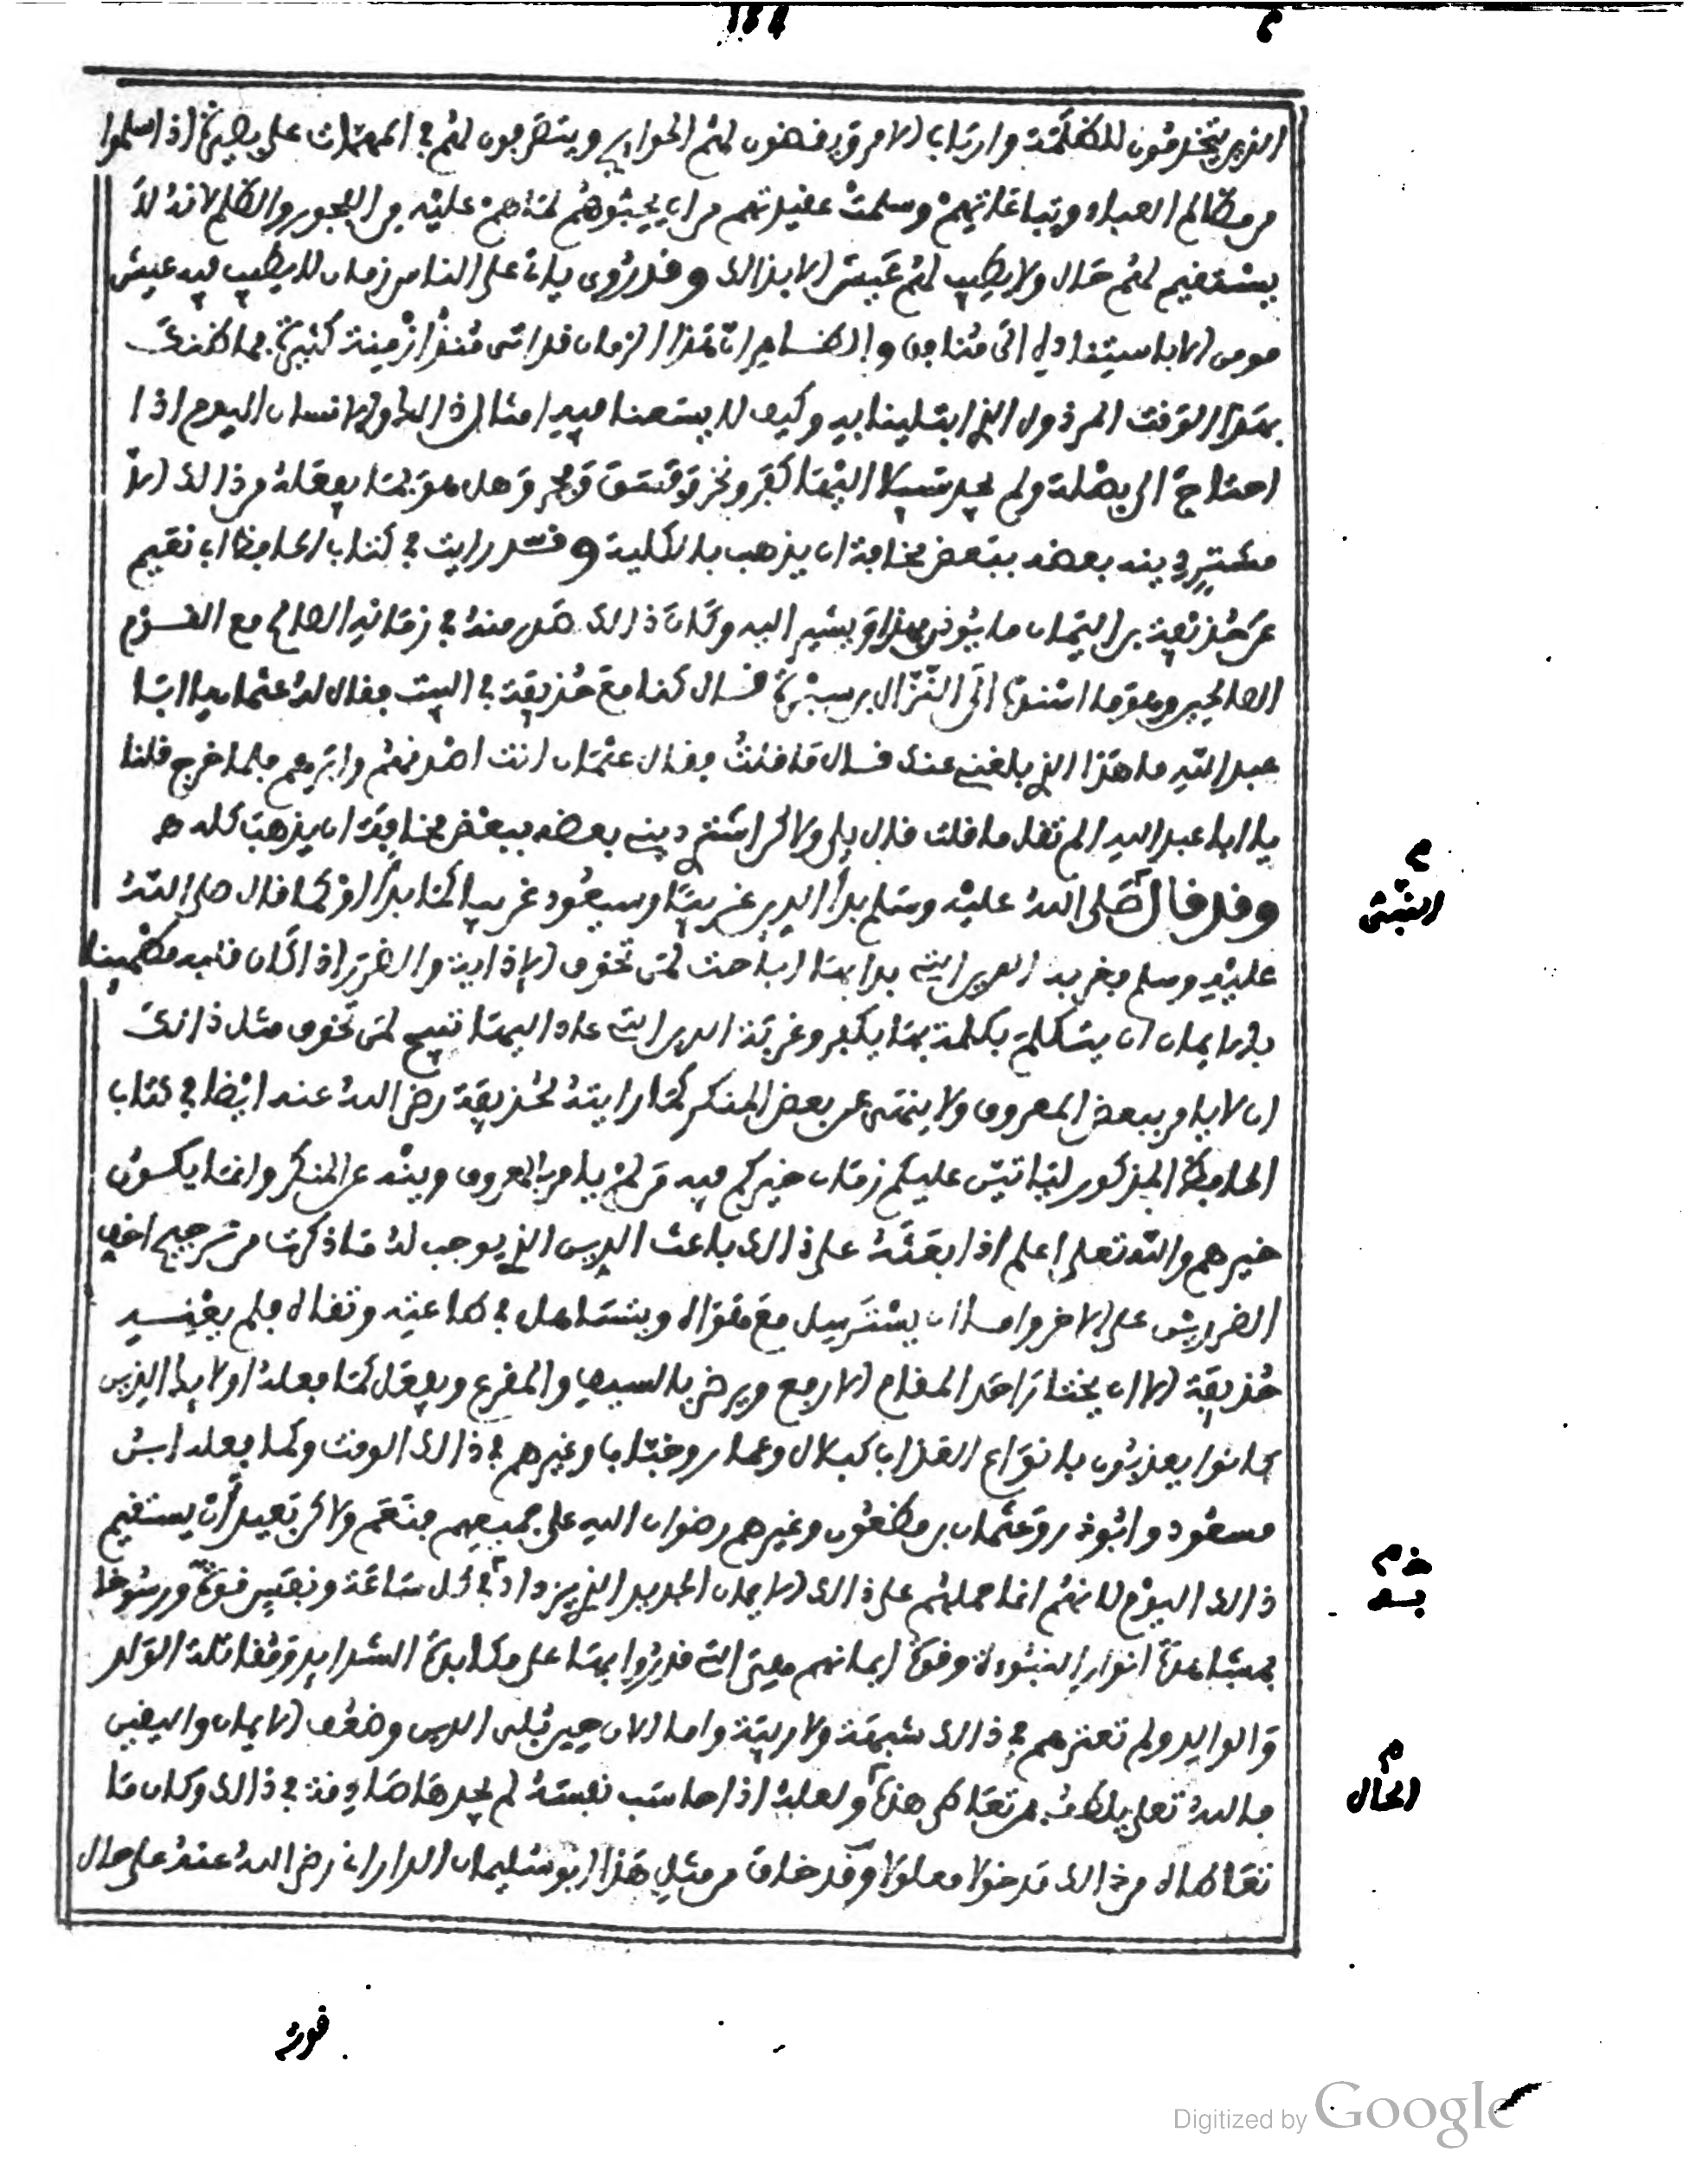 الذين يتخدمون للظلمة وارباب الامر ويقضون لهم الحوايج ويتصرفون لهم في المهمات على بصيرة اذا سلموا
من مظالم العباد وتباعاتهم وسلمت عقيدتهم من ان يحبوهم لما هم عليه من الفجور والظلم لانه لا
يستقيم لهم حال ولا يطيب لهم عيش الا بذالك وقد روي ياتي على الناس زمان لا يطيب فيه عيش
مومن الا باستناده الى منافق وان هذا الزمان قد اتى منذ ازمنة كثيرة فما ظنك
بهذا الوقت المرذول الذي ابتلينا به وكيف لا يسعنا فيه امثال ذالك والانسان اليوم اذا
احتاج الى بصلة ولم يجد سبيلا اليها كفر ونخر وفسق وفجر وهل هو بما يفعله من ذالك الا
مشتر دينه بعضه ببعض مخافة ان يذهب بالكلية وقد رايت في كتاب الحافظ ابي نعيم
عن حذيفة بن اليمان ما يوذن بهذا ويشير اليه وكان ذالك صدر منه في زمانه الصالح مع القوم
الصالحين وهو ما اسنده الى النزال بن سبرة قال كنا مع حذيفة في البيت فقال له عثمان يا ابا
عبد الله ما هذا الذي بلغني عنك قال ما قلته فقال عثمان انت اصدقهم وابرهم فلما خرج قلنا
يا ابا عبد الله الم تقل ما قلت قال بلى ولاكن اشتري ديني بعضه ببعض مخافة ان يذهب كله ه
وقد قال صلى الله عليه وسلم بدا الدين غريبا وسيعود غريبا كما بدا او كما قال صلى الله
النبي
عليه وسلم فغربة الدين التي بدا بها اباحت لمن تخوف الاذاية والضرر اذا كان قلبه مطمينا
بالايمان ان يتكلم بكلمة بها يكفر وغربة الدين التي عاد اليها تبيح لمن تخوف مثل ذالك
ان لا يامر ببعض المعروف ولا ينهى عن بعض المنكر كما رايته لحذيفة رضي الله عنه ايضا في كتاب
الحافظ المذكور لياتين عليكم زمان خيركم فيه من لم يامر بالمعروف وينه عن المنكر وانما يكون
خيرهم والله تعلى اعلم اذا بعثه على ذالك باعث الدين الذي يوجب له ما ذكرت من ترجيح اخف
الضررين على الاخر واما ان يسترسل مع هواه ويتساهل في طاعته وتقاه فلم يعنه
حذيفة الا ان يختار احد المقام الارفع ويرضى بالسيف والمقرع ويفعل كما فعله اولايك الذين
كانوا يعذبون بانواع العذاب كبلال وعمار وخباب وغيرهم في ذالك الوقت وكما فعله ابن
مسعود وابو ذر وعثمان بن مظعون وغيرهم رضوان الله على جميعهم فنعم ولاكن بعيد ان يستقيم
ذالك اليوم لانهم انما حملهم على ذالك الايمان الجديد الذي يزداد في كل ساعة ونفس قوة ورسوخا
بمشاهدة انوار النبوءة وقوة ايمانهم هي التي قدروا بها على مكابدة الشدايد ومقاتلة الولد
والوالد ولم تعترهم في ذالك شبهة ولا ريبة واما الان حين بلي الدين وضعف الايمان واليقين
فالله تعلى يلطف بمن تعاطى هذه ولعله اذا حاسب نفسه لم يجدها صادقة في ذالك وكان ما
الحال
تعاطاه من ذالك مدخولا معلولا وقد خاف من مثل هذا ابو سليمان الداراني رضي الله عنه على حال
قوته
Digitized by Google